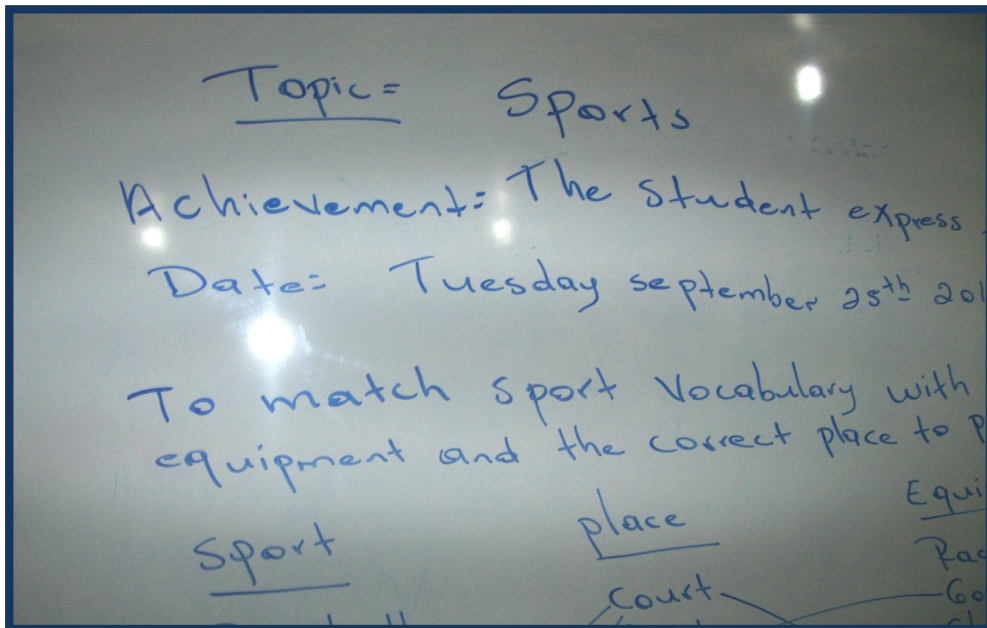 Topic= Sports
Achievement: The Student express
Date: Tuesday september 25th 201
To match sport Vocabulary with
equipment and the correct place to P
Sport place Equi
Court Rac
Go